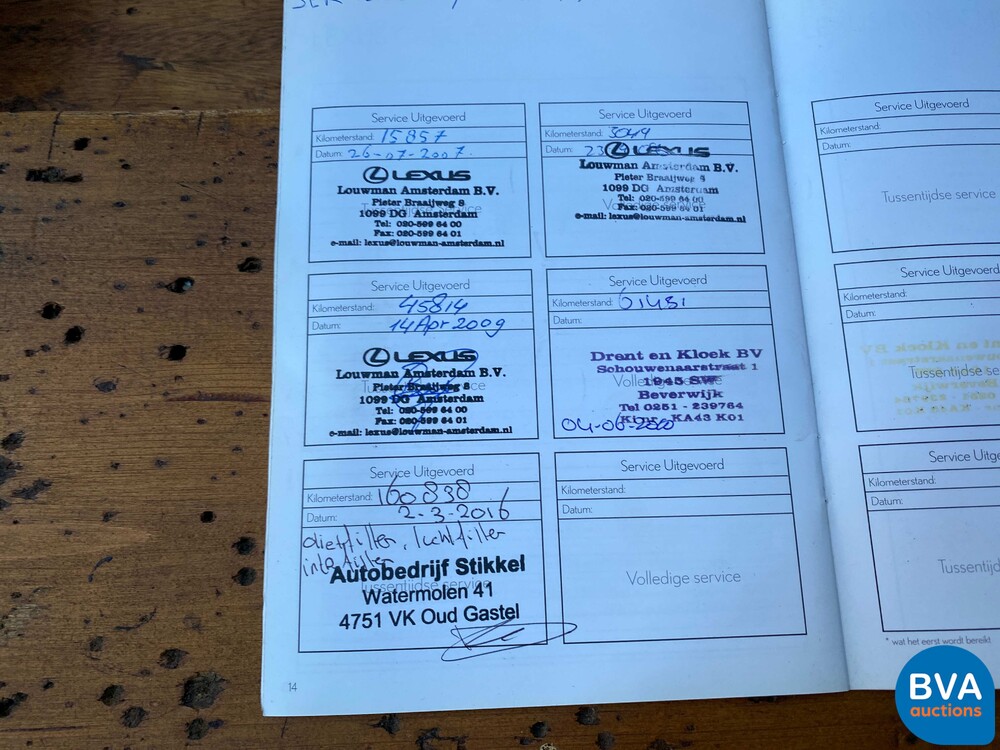 Service Uitgevoerd
Kilometerstand: 15857
Datum: 26-07-2007.
LEXUS
Louwman Amsterdam B.V.
Pieter Braaijweg 8
1099 DG Amsterdam
Tel: 020-599 64 00
Fax: 020-599 64 01
e-mail: lexus@louwman-amsterdam.nl
Service Uitgevoerd
Kilometerstand:
Datum: 23
LEXUS
Louwman Amsterdam B.V.
Pieter Braaijweg 8
1099 DG Amsterdam
Tel: 020-599 64 00
Fax: 020-599 64 01
e-mail: lexus@louwman-amsterdam.nl
Service Uitgevoerd
Kilometerstand:
Datum:
Tussentijdse service
Service Uitgevoerd
Kilometerstand: 45814
Datum: 14 Apr 2009
LEXUS
Louwman Amsterdam B.V.
Pieter Braaijweg 8
1099 DG Amsterdam
Tel: 020-599 64 00
Fax: 020-599 64 01
e-mail: lexus@louwman-amsterdam.nl
Service Uitgevoerd
Kilometerstand: 61451
Datum:
Drent en Kloek BV
Schouwenaarstraat 1
Volledige service
1945 SW
Beverwijk
Tel 0251 - 239764
KA43 K01
04-06-2010
Service Uitgevoerd
Kilometerstand:
Datum:
Tussentijdse se
Service Uitgevoerd
Kilometerstand: 160838
Datum: 2-3-2016
oliefilter, luchtfilter
Autobedrijf Stikkel
Tussentijdse service
Watermolen 41
4751 VK Oud Gastel
Service Uitgevoerd
Kilometerstand:
Datum:
Volledige service
Service Uitg
Kilometerstand:
Datum:
Tussentijd
* wat het eerst wordt bereikt
14
BVA
auctions